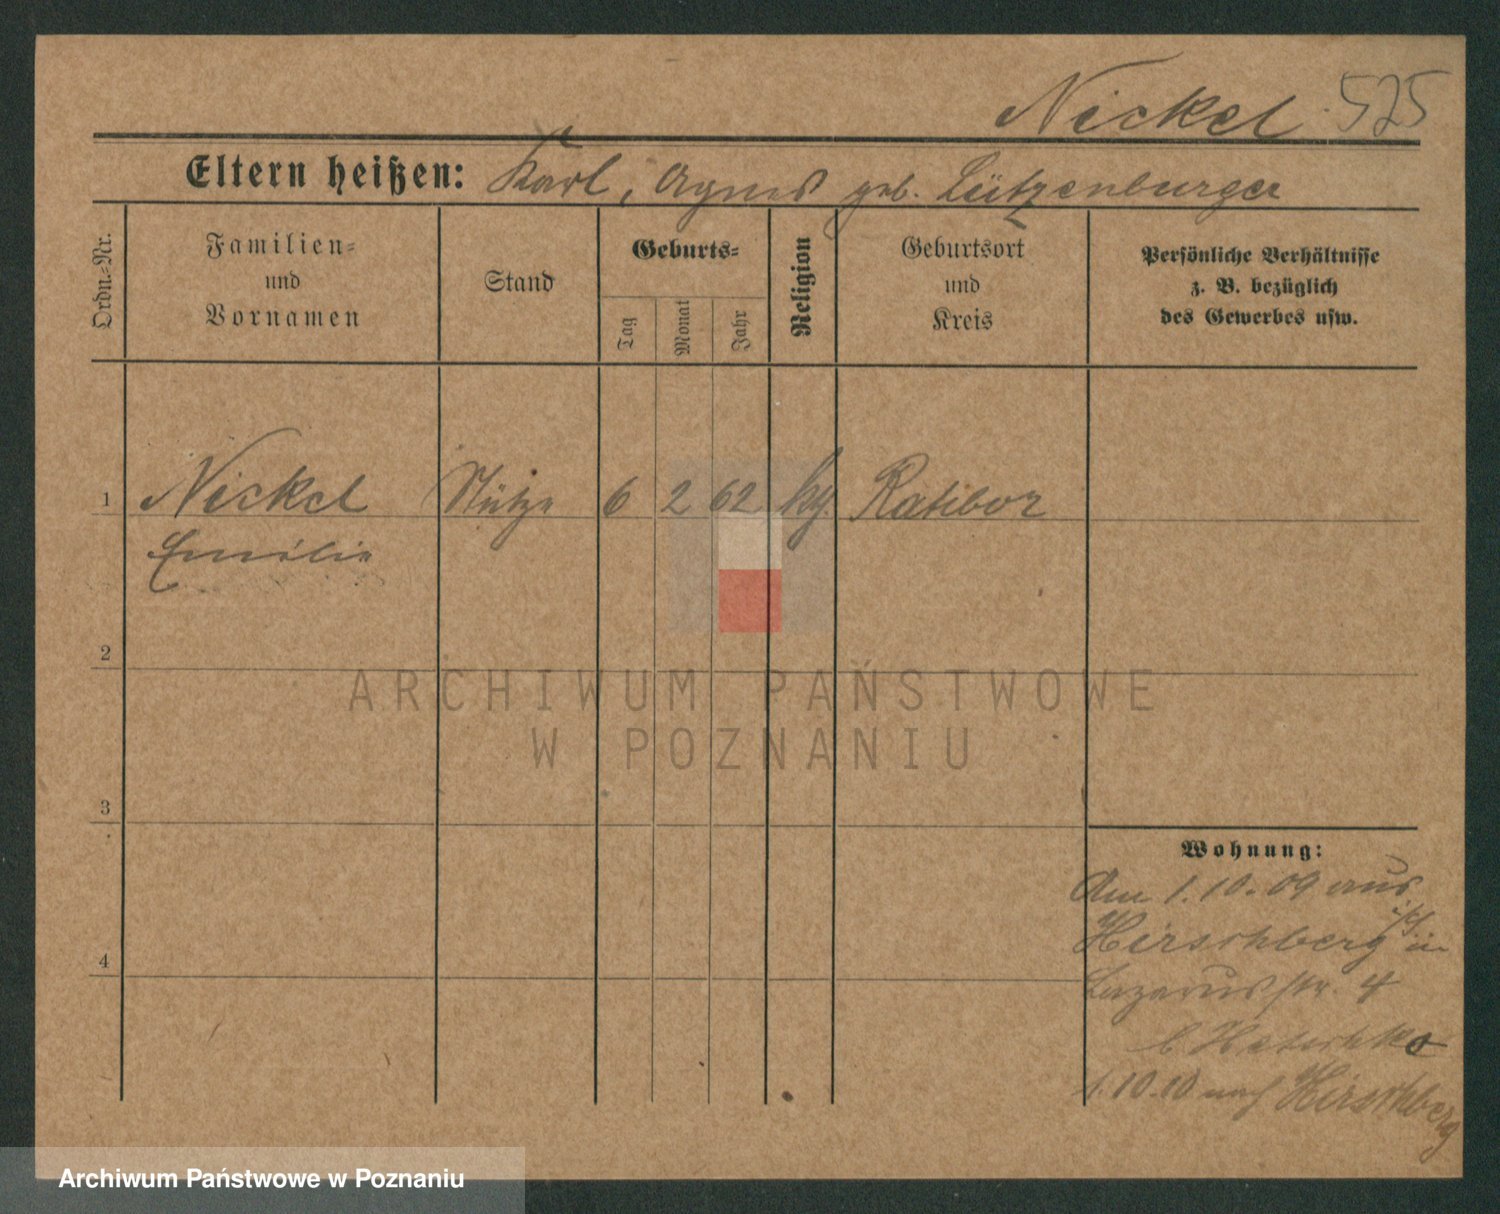 Nickel 575
Eltern heißen: Karl, Agnes geb. Lützenburger
Ordn.=Nr.
Familien=
und
Vornamen
Stand
Geburts=
Tag
Monat
Jahr
Religion
Geburtsort
und
Kreis
Persönliche Verhältnisse
z. B. bezüglich
des Gewerbes usw.
1 Nickel Stütze 6 2 62 Ratibor
Emilie
2
3
4
Wohnung:
Am 1.10.09 aus
Hirschberg in
Lazarusstr. 4
b
1.10.10 nach Hirschberg
ARCHIWUM PAŃSTWOWE
W POZNANIU
Archiwum Państwowe w Poznaniu